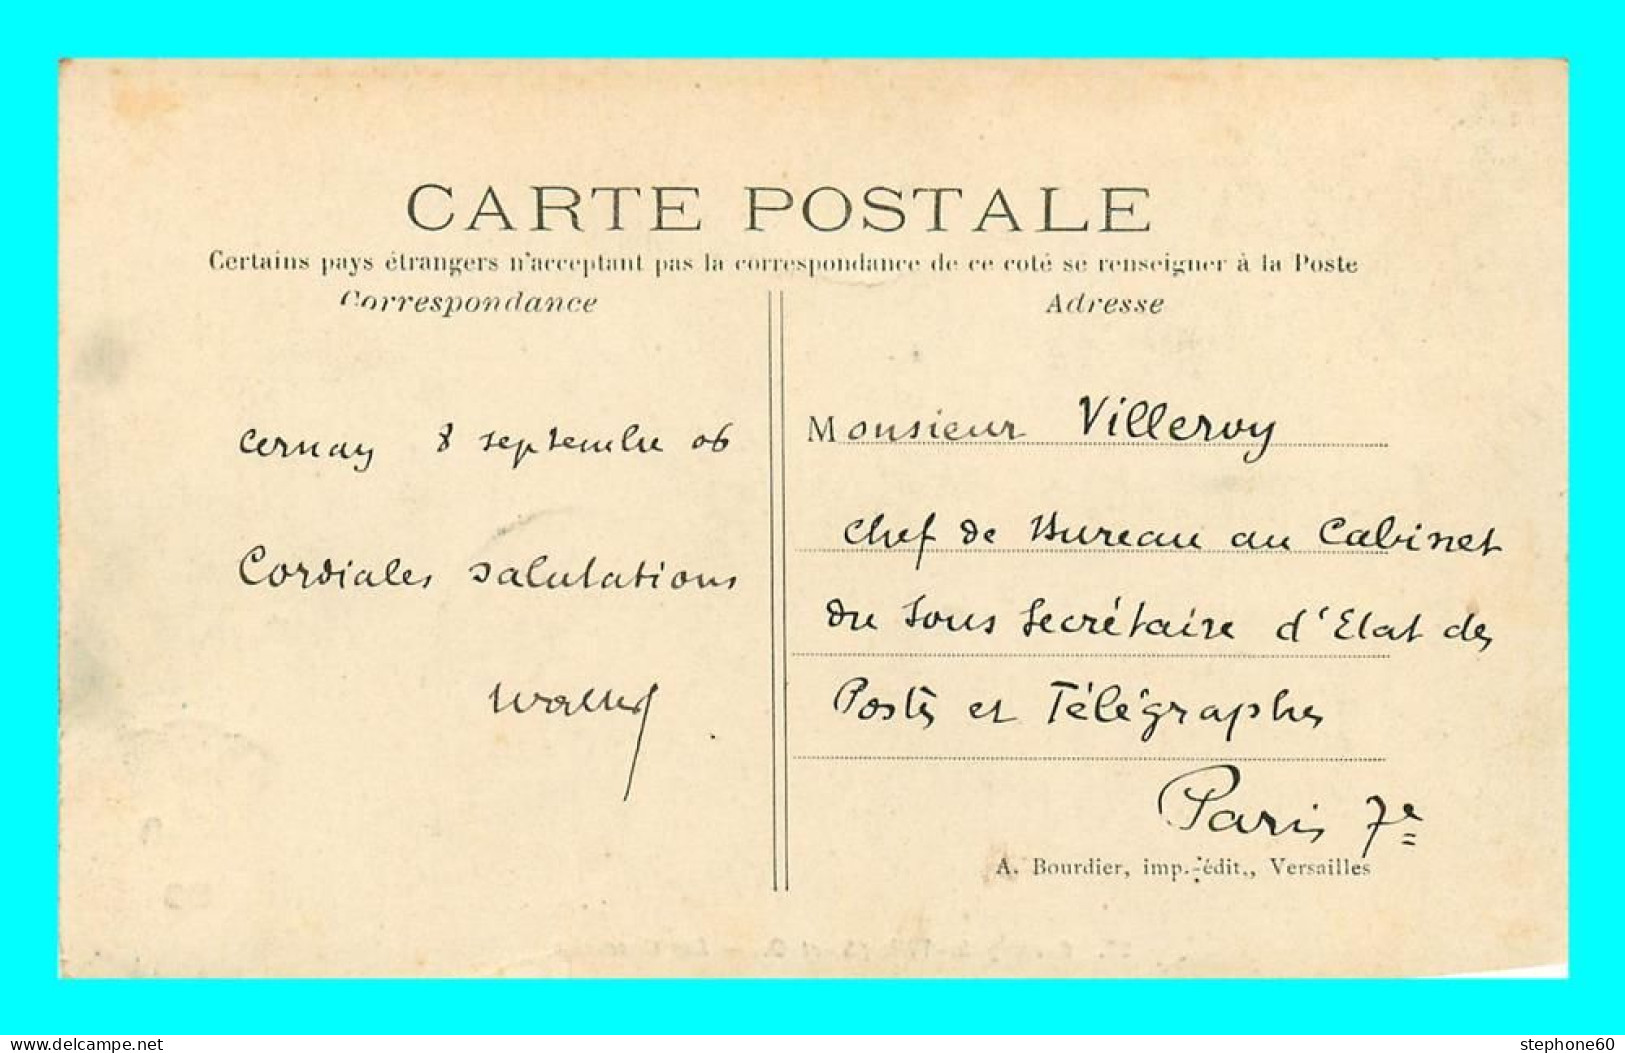 CARTE POSTALE
Certains pays étrangers n'acceptant pas la correspondance de ce coté se renseigner à la Poste
Correspondance
Adresse
Cernay 8 septembre 06
Cordiales salutations
Monsieur Villeroy
Chef de Bureau au Cabinet
du Sous Secrétaire d'Etat des
Postes et Télégraphes
Paris 7e
A. Bourdier, imp.-édit., Versailles
delcampe.net
stephone60